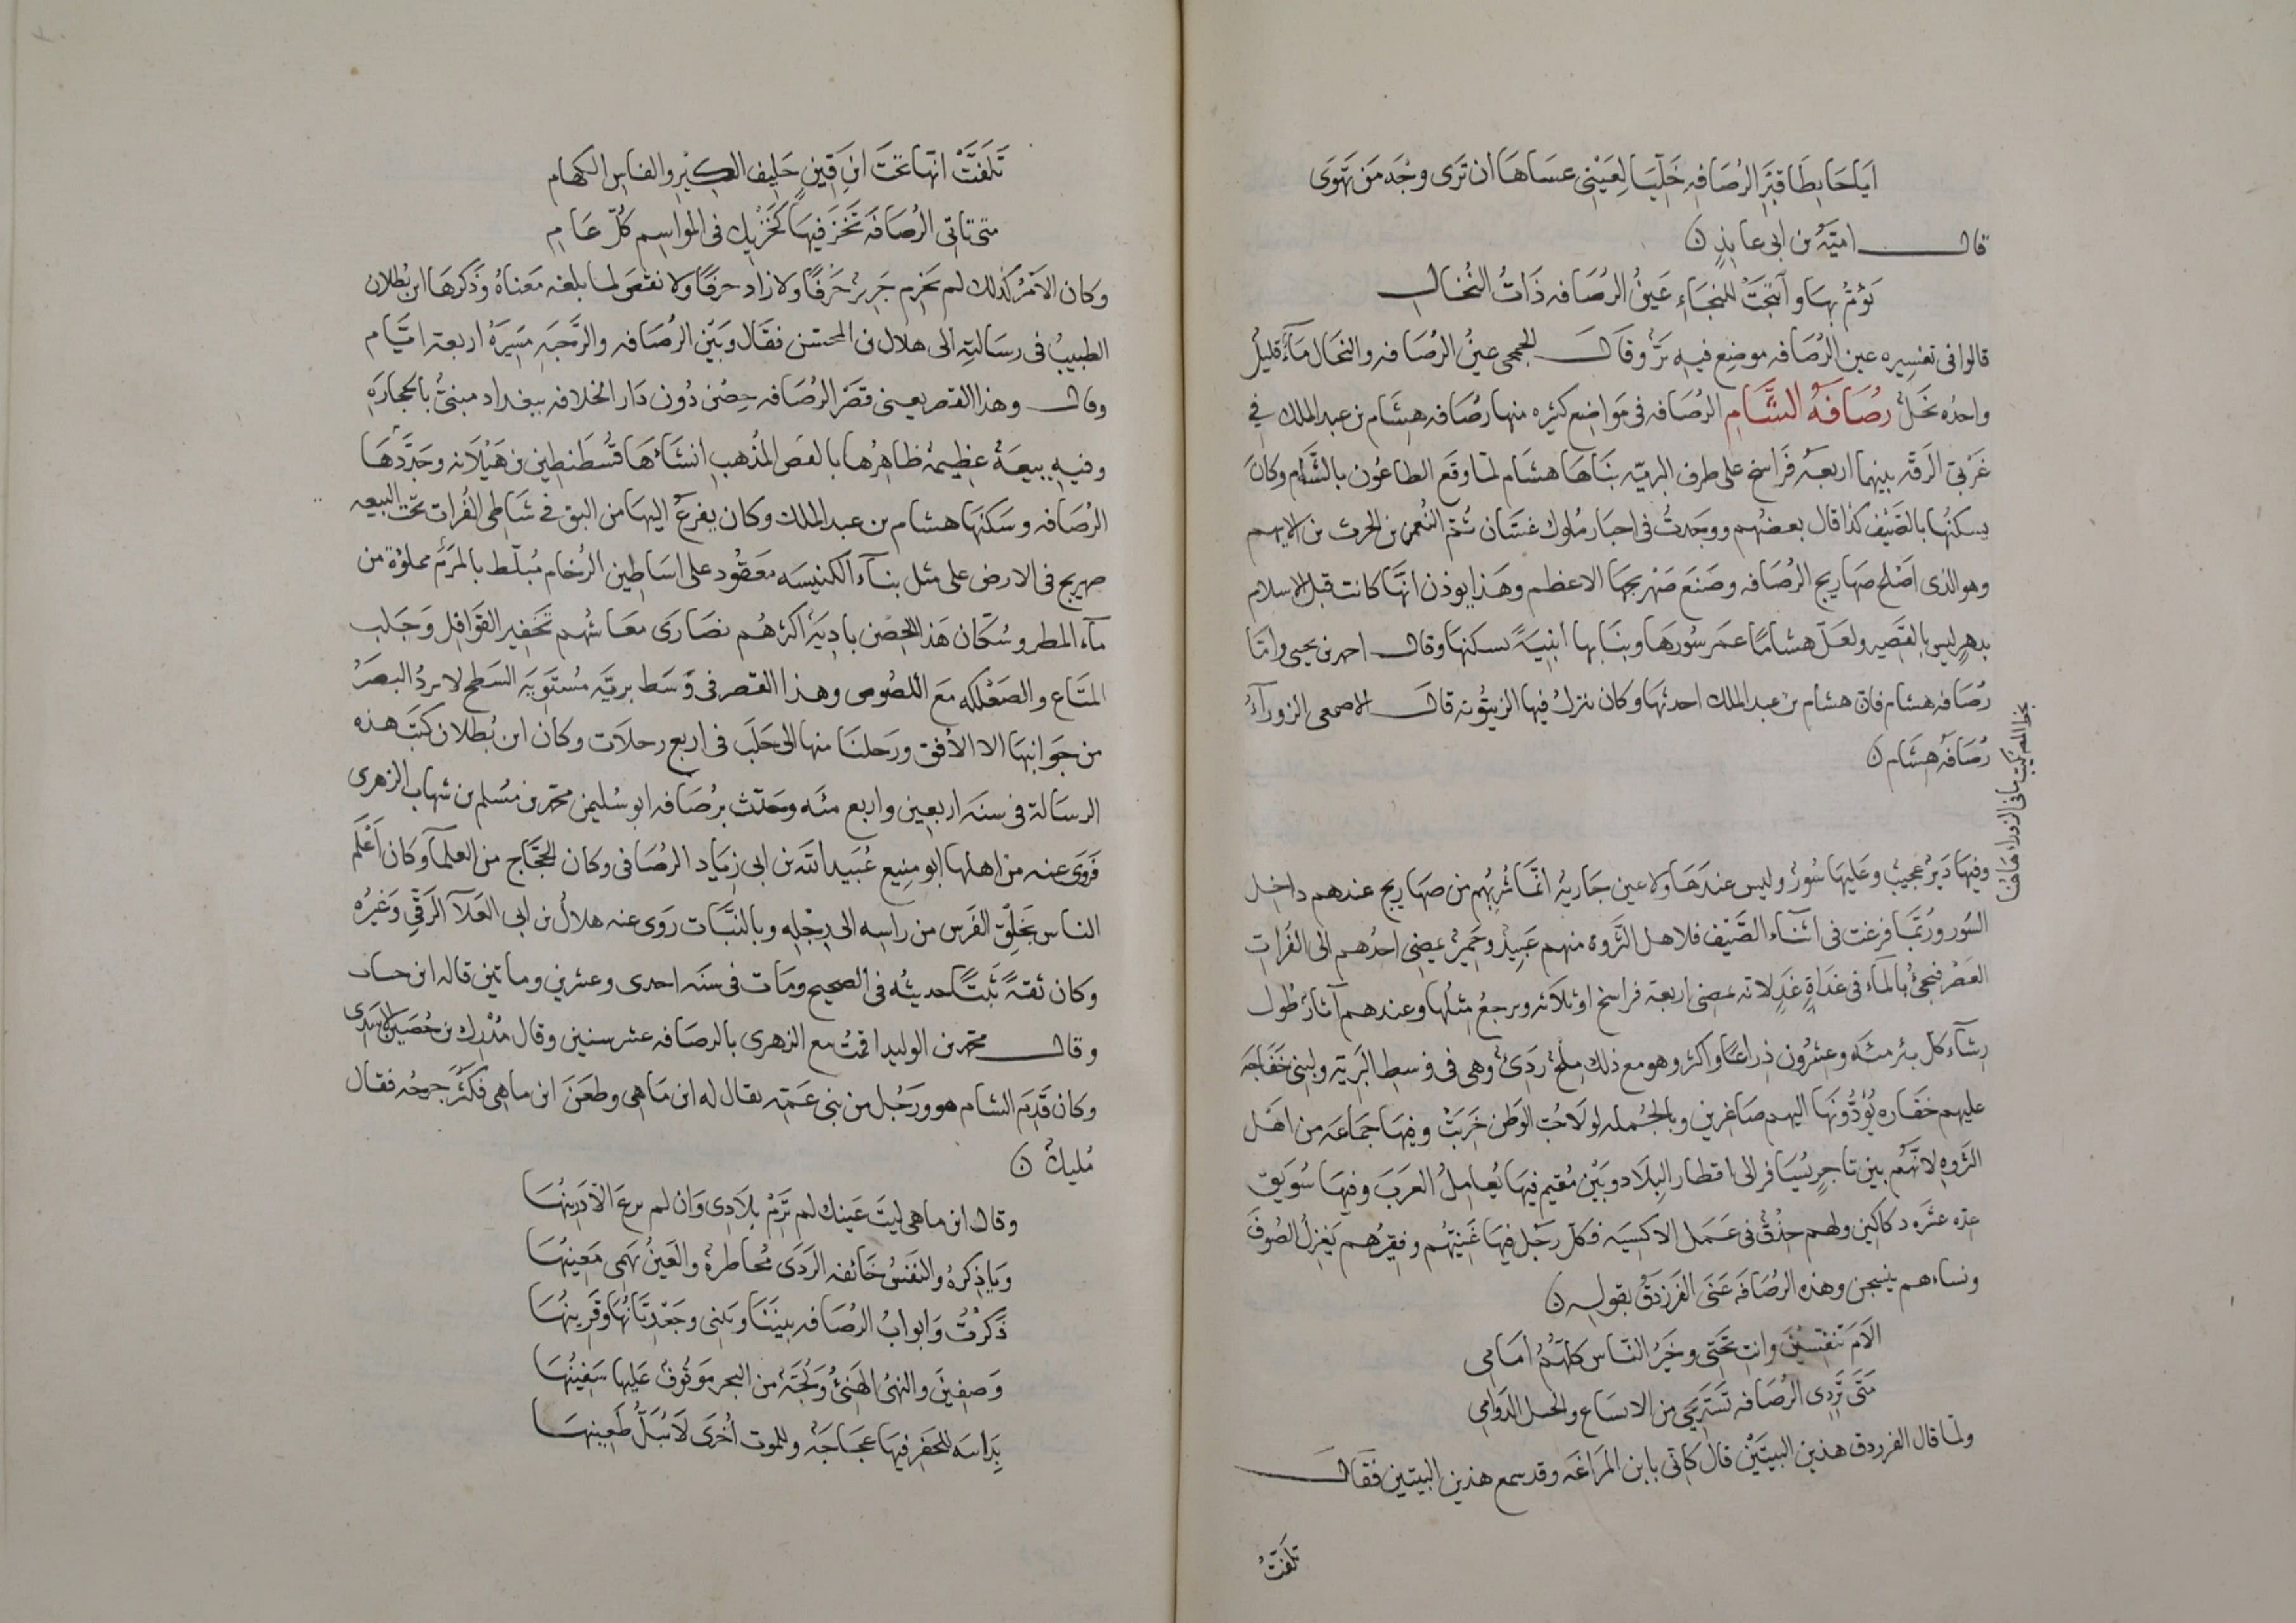 اياحابطا قبر الرصافه خليا لعيني عساها ان ترى وجه من تهوى
قال امية بن ابى عايذ
يؤم بها وانتجت للنجاء عين الرصافه ذات النخال
قالوا فى تفسيره عين الرصافه موضع فيه نز وقال الجمحى عين الرصافه والنخال ماء قليل
واحده نخل رصافة الشام الرصافه فى مواضع كثيره منها رصافه هشام بن عبد الملك فى
غربى الرقه بينهما اربعة فراسخ على طرف البريه بناها هشام لما وقع الطاعون بالشام وكان
يسكنها بالصيف كذا قال بعضهم ووجدت فى اخبار ملوك غسان ثم النعمن بن الحرث بن الايهم
وهو الذى اصلح صهاريج الرصافه وصنع صهريجها الاعظم وهذا يوذن انها كانت قبل الاسلام
بدهر ليس بالقصير ولعل هشاما عمر سورها وبنا بها ابنية يسكنها وقال احمد بن يحيى واما
رصافه هشام فان هشام بن عبد الملك احدثها وكان ينزل فيها الزيتونه قال الاصمعى الزوراء
رصافه هشام
وفيها دير عجيب وعليها سور وليس عندها ولا عين جاريه انما شربهم من صهاريج عندهم داخل
السور وربما فرغت فى اثناء الصيف فلاهل الثروه منهم عبيد وحمير يمضى احدهم الى الفرات
العصر فيجئ بالماء فى غداة غد لانه يمضى اربعة فراسخ او ثلاثه ويرجع مثلها وعندهم آثار طول
رشاء كل بئر مئه وعشرون ذراعا واكثر وهو مع ذلك ملح ردئ وهى فى وسط البرية ولبنى خفاجه
عليهم خفاره يؤدونها اليهم صاغرين وبالجمله لولا حب الوطن خربت وفيها جماعه من اهل
الثروه لانهم بين تاجر يسافر الى اقطار البلاد وبين مقيم فيها يعامل العرب وفيها سويق
عده عشره دكاكين ولهم حذق فى عمل الاكسيه فكل رجل فيها غنيهم وفقيرهم يغزل الصوف
ونساءهم ينسجن وهذه الرصافه عنى الفرزدق بقوله
الام تلفتين وانت تحتى وخير الناس كلهم امامى
متى تردى الرصافه تستريحى من الانساع والجلب الدوامى
ولما قال الفرزدق هذين البيتين قال كانى بابن المراغه وقد سمع هذين البيتين فقال
تلفت
تلفت انها تحت ابن قين حليف الكير والفاس الكهام
متى تاتى الرصافه تخز فيها كخزيك فى المواسم كل عام
وكان الامر كذلك لم يخرم جرير حرفا ولا زاد حرفا ولا نقص لما بلغه معناه وذكرها ابن بطلان
الطبيب فى رسالته الى هلال بن المحسن فقال وبين الرصافه والرحبه مسيرة اربعة ايام
وقال وهذا القصر يعنى قصر الرصافه حصن دون دار الخلافه ببغداد مبنى بالحجاره
وفيه بيعة عظيمة ظاهرها بالفص المذهب انشاءها قسطنطين بن هيلانه وجددها
الرصافه وسكنها هشام بن عبد الملك وكان يفزع اليها من البق فى شاطى الفرات تحت البيعه
صهريج فى الارض على مثل بناء الكنيسه معقود على اساطين الرخام مبلط بالمرمر مملؤة من
ماء المطر وسكان هذا الحصن بادية اكثرهم نصارى معاشهم تخفير القوافل وجلب
المتاع والصعلكه مع اللصوص وهذا القصر فى وسط بريه مستوية السطح لا يرد البصر
من جوانبها الا الافق ورحلنا منها الى حلب فى اربع رحلات وكان ابن بطلان كتب هذه
الرسالة فى سنة اربعين واربع مئه وحدث برصافه ابو سليمن محمد بن مسلم بن شهاب الزهرى
فروى عنه من اهلها ابو منيع عبيد الله بن ابى زياد الرصافى وكان الحجاج من العلماء وكان اعلم
الناس بخلق الفرس من راسه الى رجله وبالنبات روى عنه هلال بن ابى العلا الرقى وغيره
وكان ثقة ثبتا حديثه فى الصحيح ومات فى سنة احدى وعشرين وماتين قاله ابن حبان
وقال محمد بن الوليد اقمت مع الزهرى بالرصافه عشر سنين وقال مدرك بن حصين الاسدى
وكان قدم الشام هو ورجل من بنى عمه يقال له ابن ماهى وطعن ابن ماهى فكثر جرحه فقال
مليك
وقال ابن ماهى ليت عينك لم ترم بلادى وان لم يرع الا درينها
ويا ذكرة والنفس خائفه الردى مخاطرة والعين يهمى معينها
ذكرت وابواب الرصافه بيننا وبينى وجعديتانها وقرينها
وصفين والنهى الهنئ ولجة من البحر موقوف عليها سفينها
بداسه للحفر فيها عجاجه وللموت اخرى لا يبل طعينها